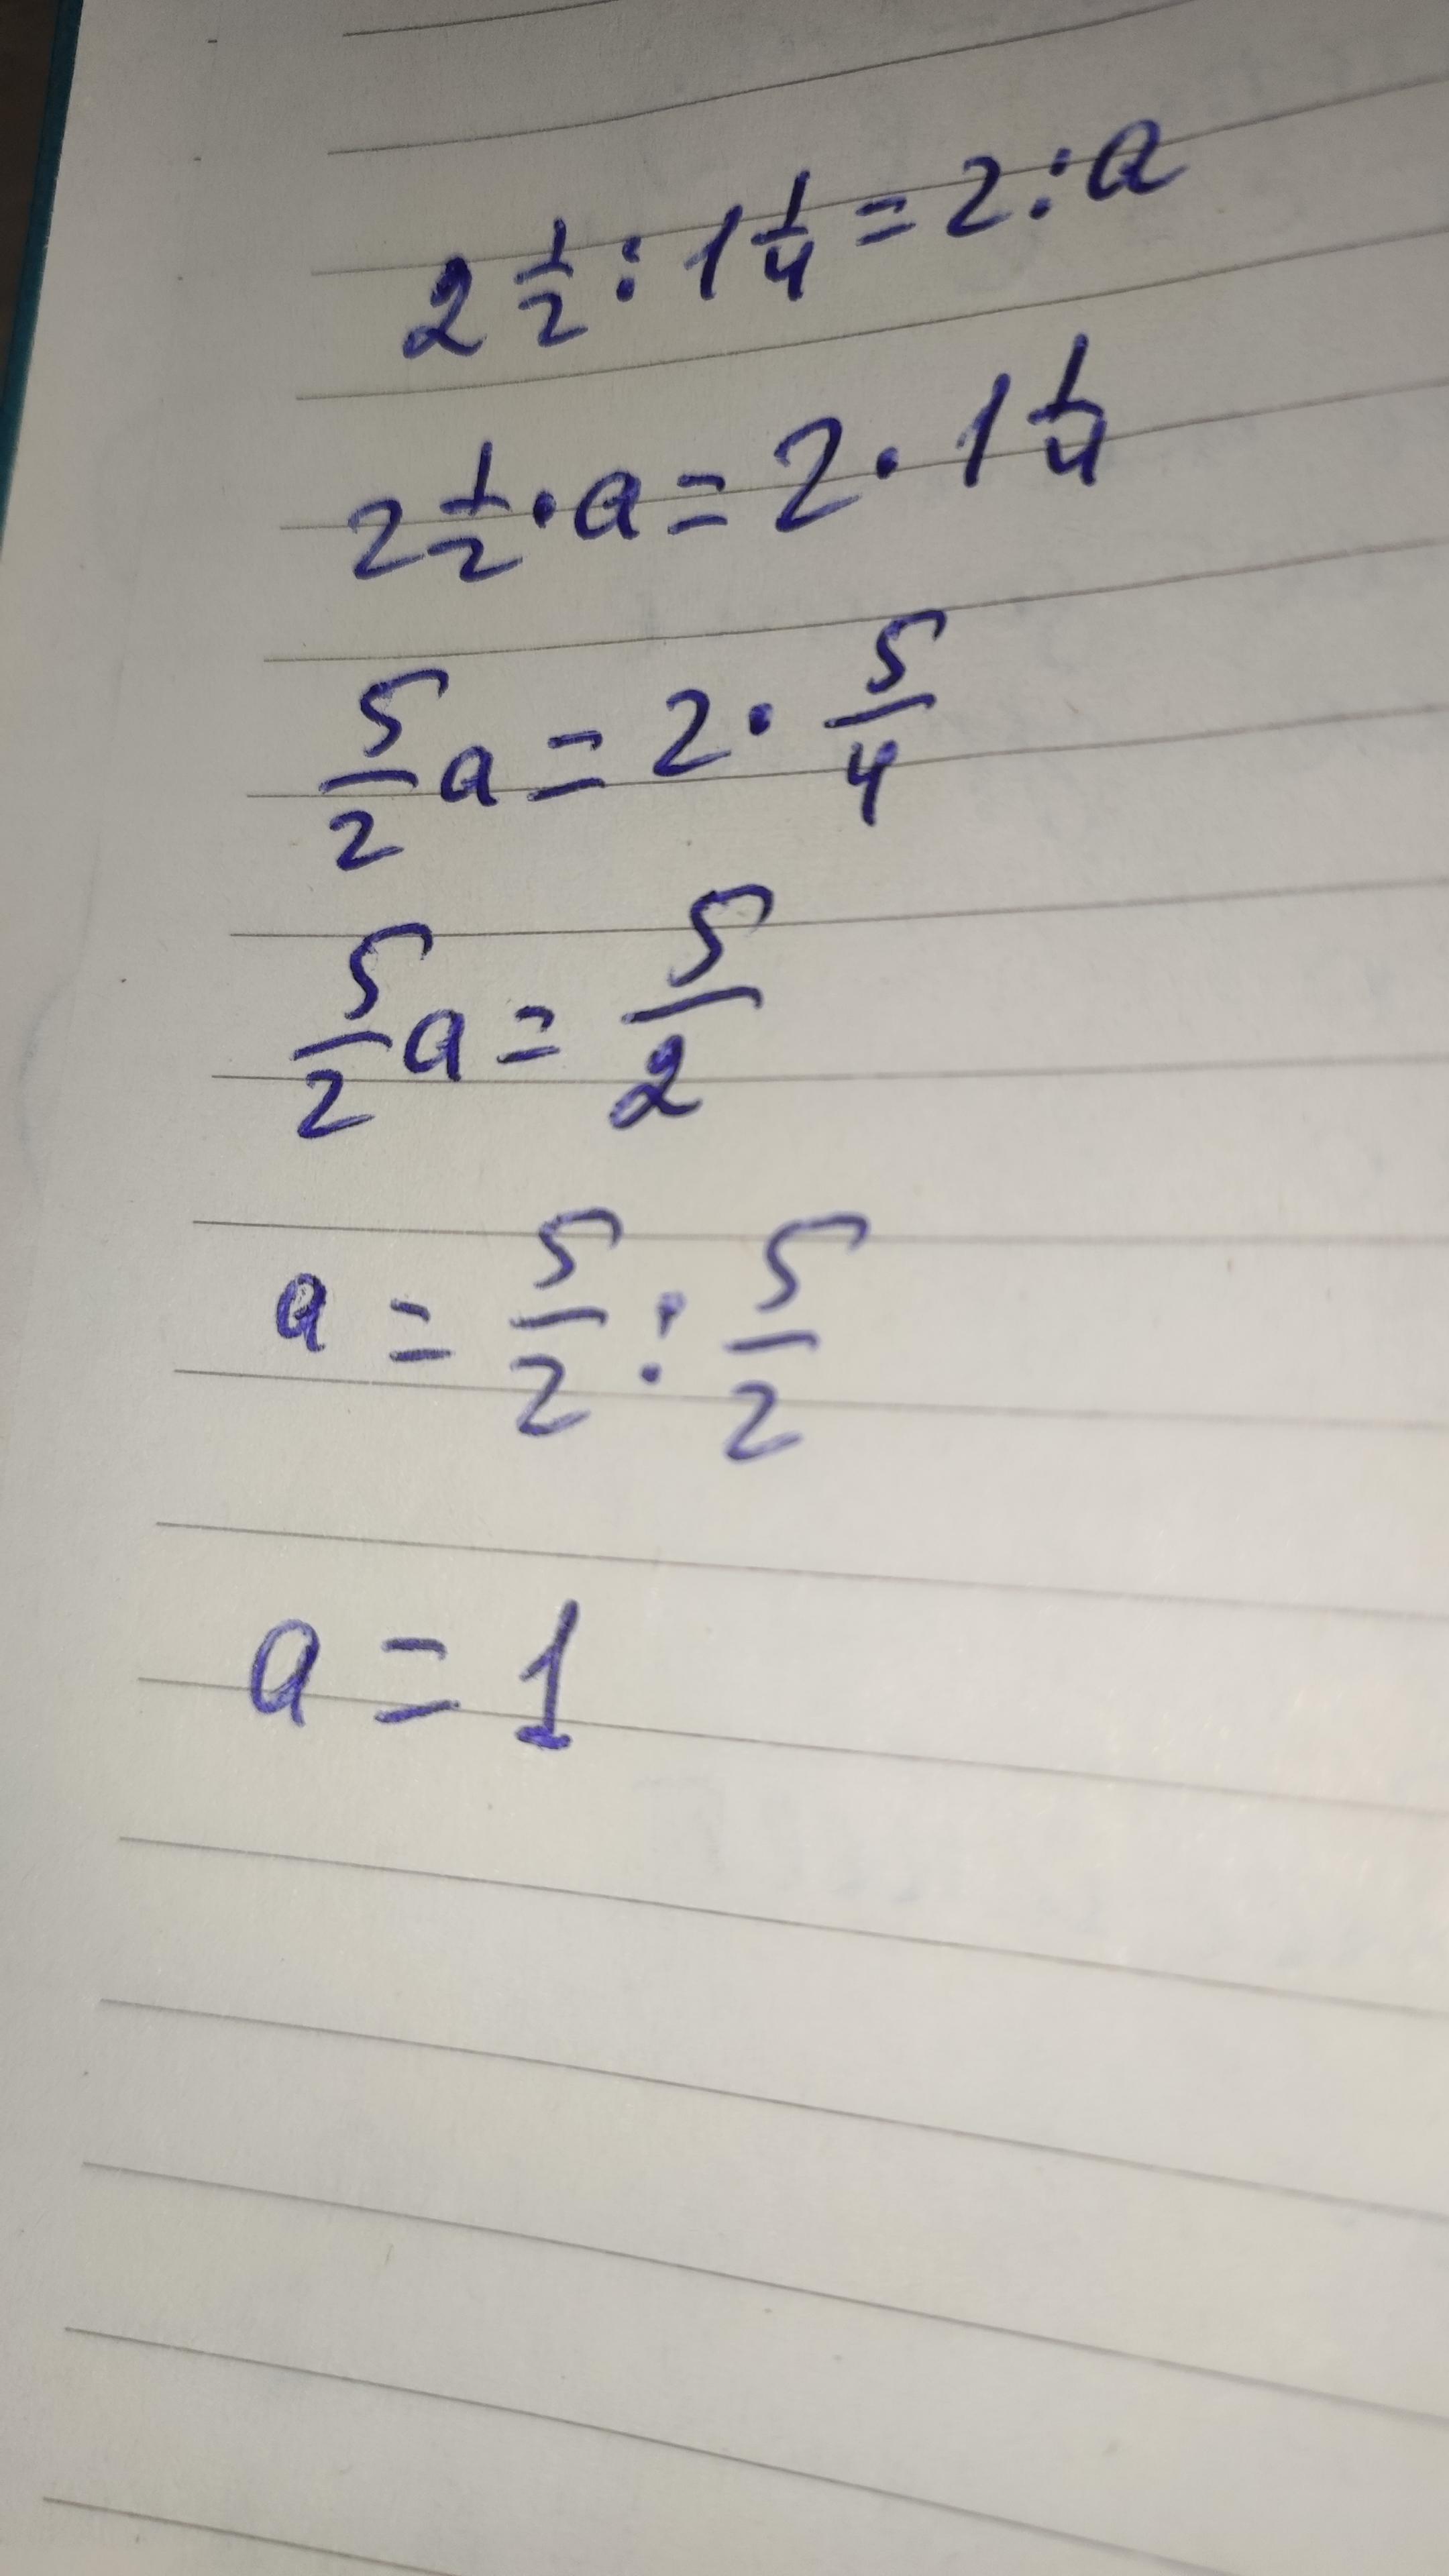 2 1/2 : 1 1/4 = 2 : a
2 1/2 · a = 2 · 1 1/4
5/2 a = 2 · 5/4
5/2 a = 5/2
a = 5/2 : 5/2
a = 1